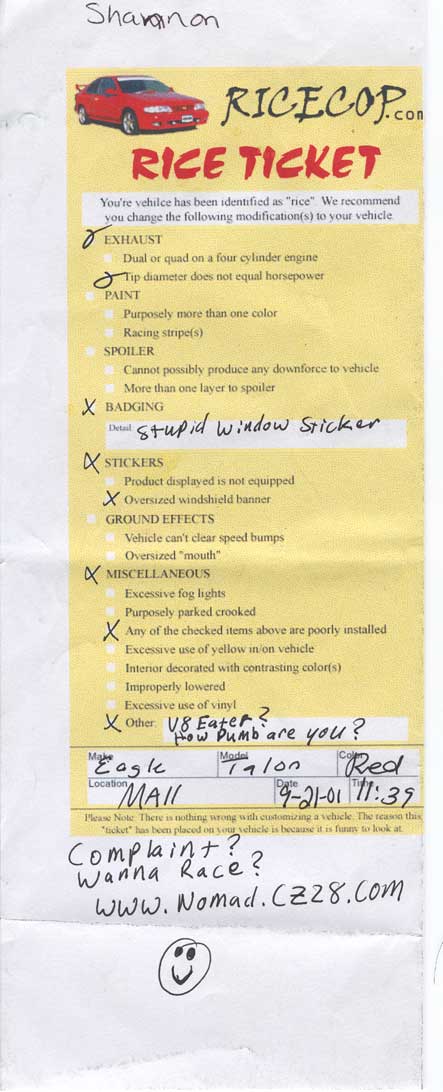 Shannon
RICECOP.com
RICE TICKET
You're vehilce has been identified as "rice". We recommend
you change the following modification(s) to your vehicle
EXHAUST
Dual or quad on a four cylinder engine
Tip diameter does not equal horsepower
PAINT
Purposely more than one color
Racing stripe(s)
SPOILER
Cannot possibly produce any downforce to vehicle
More than one layer to spoiler
X BADGING
Detail Stupid Window Sticker
X STICKERS
Product displayed is not equipped
X Oversized windshield banner
GROUND EFFECTS
Vehicle can't clear speed bumps
Oversized "mouth"
X MISCELLANEOUS
Excessive fog lights
Purposely parked crooked
X Any of the checked items above are poorly installed
Excessive use of yellow in/on vehicle
Interior decorated with contrasting color(s)
Improperly lowered
Excessive use of vinyl
X Other: V8 Eater?
How Dumb are you?
Make Eagle Model Talon Color Red
Location MAll Date 9-21-01 Time 11:39
Please Note: There is nothing wrong with customizing a vehicle. The reason this
"ticket" has been placed on your vehicle is because it is funny to look at.
Complaint?
Wanna Race?
www.Nomad.CZ28.com